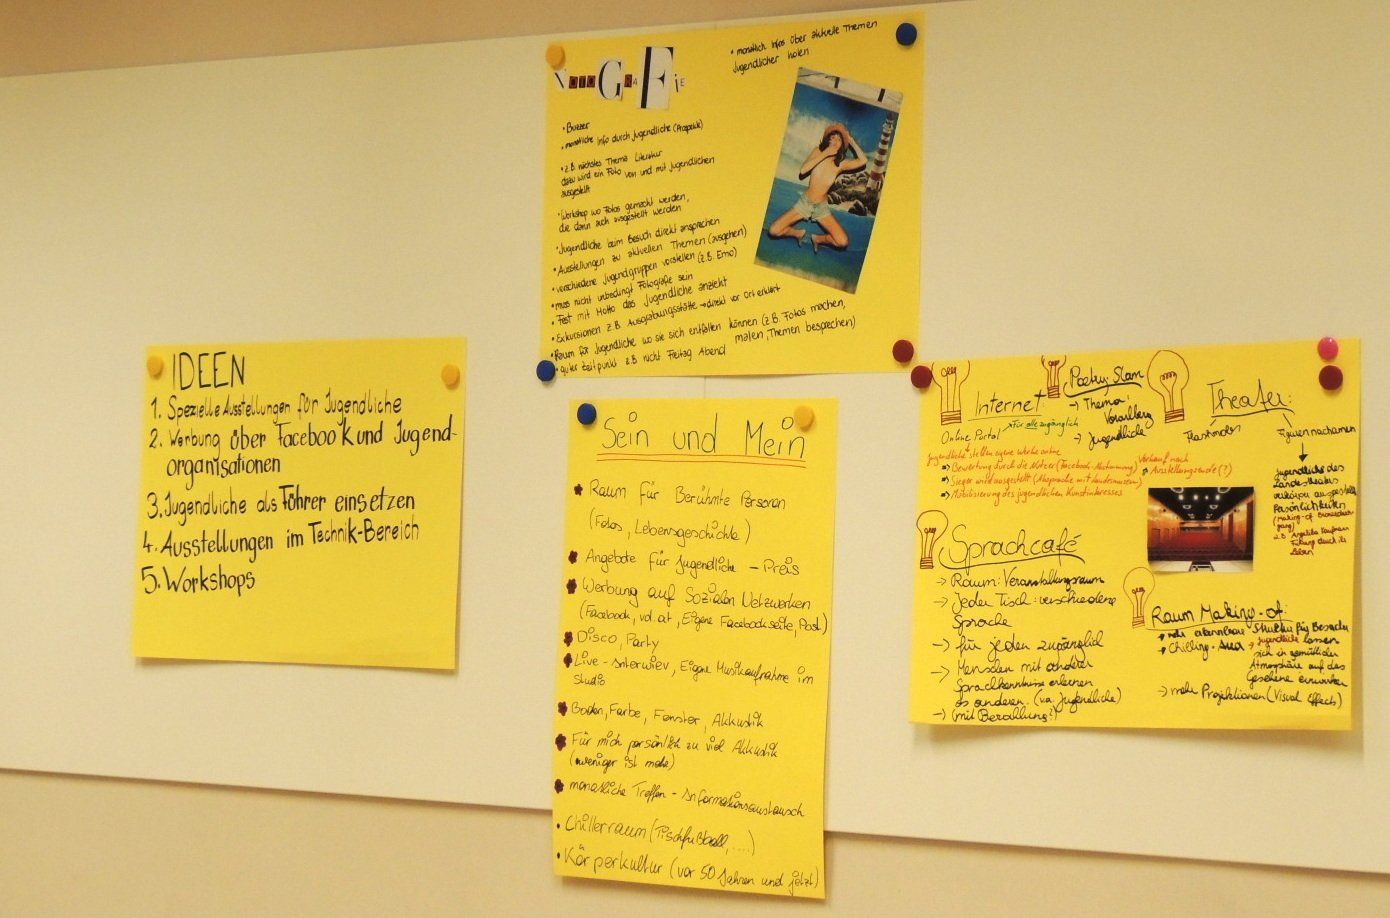 IDEEN
1. Spezielle Ausstellungen für Jugendliche
2. Werbung über Facebook und Jugend-
organisationen
3. Jugendliche als Führer einsetzen
4. Ausstellungen im Technik-Bereich
5. Workshops
FotoGRAFiE
• monatlich Infos über aktuelle Themen
Jugendlicher holen
• Buzzer
• monatliche Info durch Jugendliche (Prospekte)
• z.B. nächstes Thema Literatur
dazu wird ein Foto von und mit Jugendlichen
ausgestellt
• Workshop wo Fotos gemacht werden,
die dann auch ausgestellt werden
• Jugendliche beim Besuch direkt ansprechen
• Ausstellungen zu aktuellen Themen (ausgehen)
• verschiedene Jugendgruppen vorstellen (z.B. Emo)
• muss nicht unbedingt Fotografie sein
• Fest mit Motto das Jugendliche anzieht
• Exkursionen z.B. Ausgrabungsstätte → direkt vor Ort erklärt
• Raum für Jugendliche wo sie sich entfalten können (z.B. Fotos machen,
malen, Themen besprechen)
• guter Zeitpunkt z.B. nicht Freitag Abend
Sein und Mein
Raum für Berühmte Personen
(Fotos, Lebensgeschichte)
Angebote für Jugendliche - Preis
Werbung auf Sozialen Netzwerken
(Facebook, vol.at, Eigene Facebookseite, Post)
Disco, Party
Live-Interview, Eigene Musikaufnahme im
Studio
Boden, Farbe, Fenster, Akkustik
Für mich persönlich zu viel Akkustik
(weniger ist mehr)
monatliche Treffen - Informationsaustausch
• Chillerraum (Tischfußball, ....)
• Körperkultur (vor 50 Jahren und jetzt)
Internet
Online Portal → für alle zugänglich
Jugendliche stellen eigene Werke online
⇒ Bewertung durch die Nutzer (Facebook-Abstimmung)
⇒ Sieger wird ausgestellt (Absprache mit Landesmuseum)
⇒ Mobilisierung des jugendlichen Kunstinteresses
Verkauf nach
Ausstellungsende (?)
Poetry Slam
→ Thema:
Vorarlberg
→ Jugendliche
Theater:
Flashmobs
Figuren nachahmen
Jugendliche des
Landestheaters
verkörpern ausgestellte
Persönlichkeiten
z.B. Angelika Kaufmann
Führung durch ihr
Leben
Sprachcafé
→ Raum: Veranstaltungsraum
→ Jeder Tisch: verschiedene
Sprache
→ für jeden zugänglich
→ Menschen mit anderer
Sprachkenntnisse erlernen
es anderen. (va. Jugendliche)
→ (mit Bezahlung?)
Raum Making-of:
→ mehr erkennbare Struktur für Besucher
→ Chilling-Area → Jugendliche lassen
sich in gemütlicher
Atmosphäre auf das
Gesehene einwirken
→ mehr Projektionen (Visual Effects)